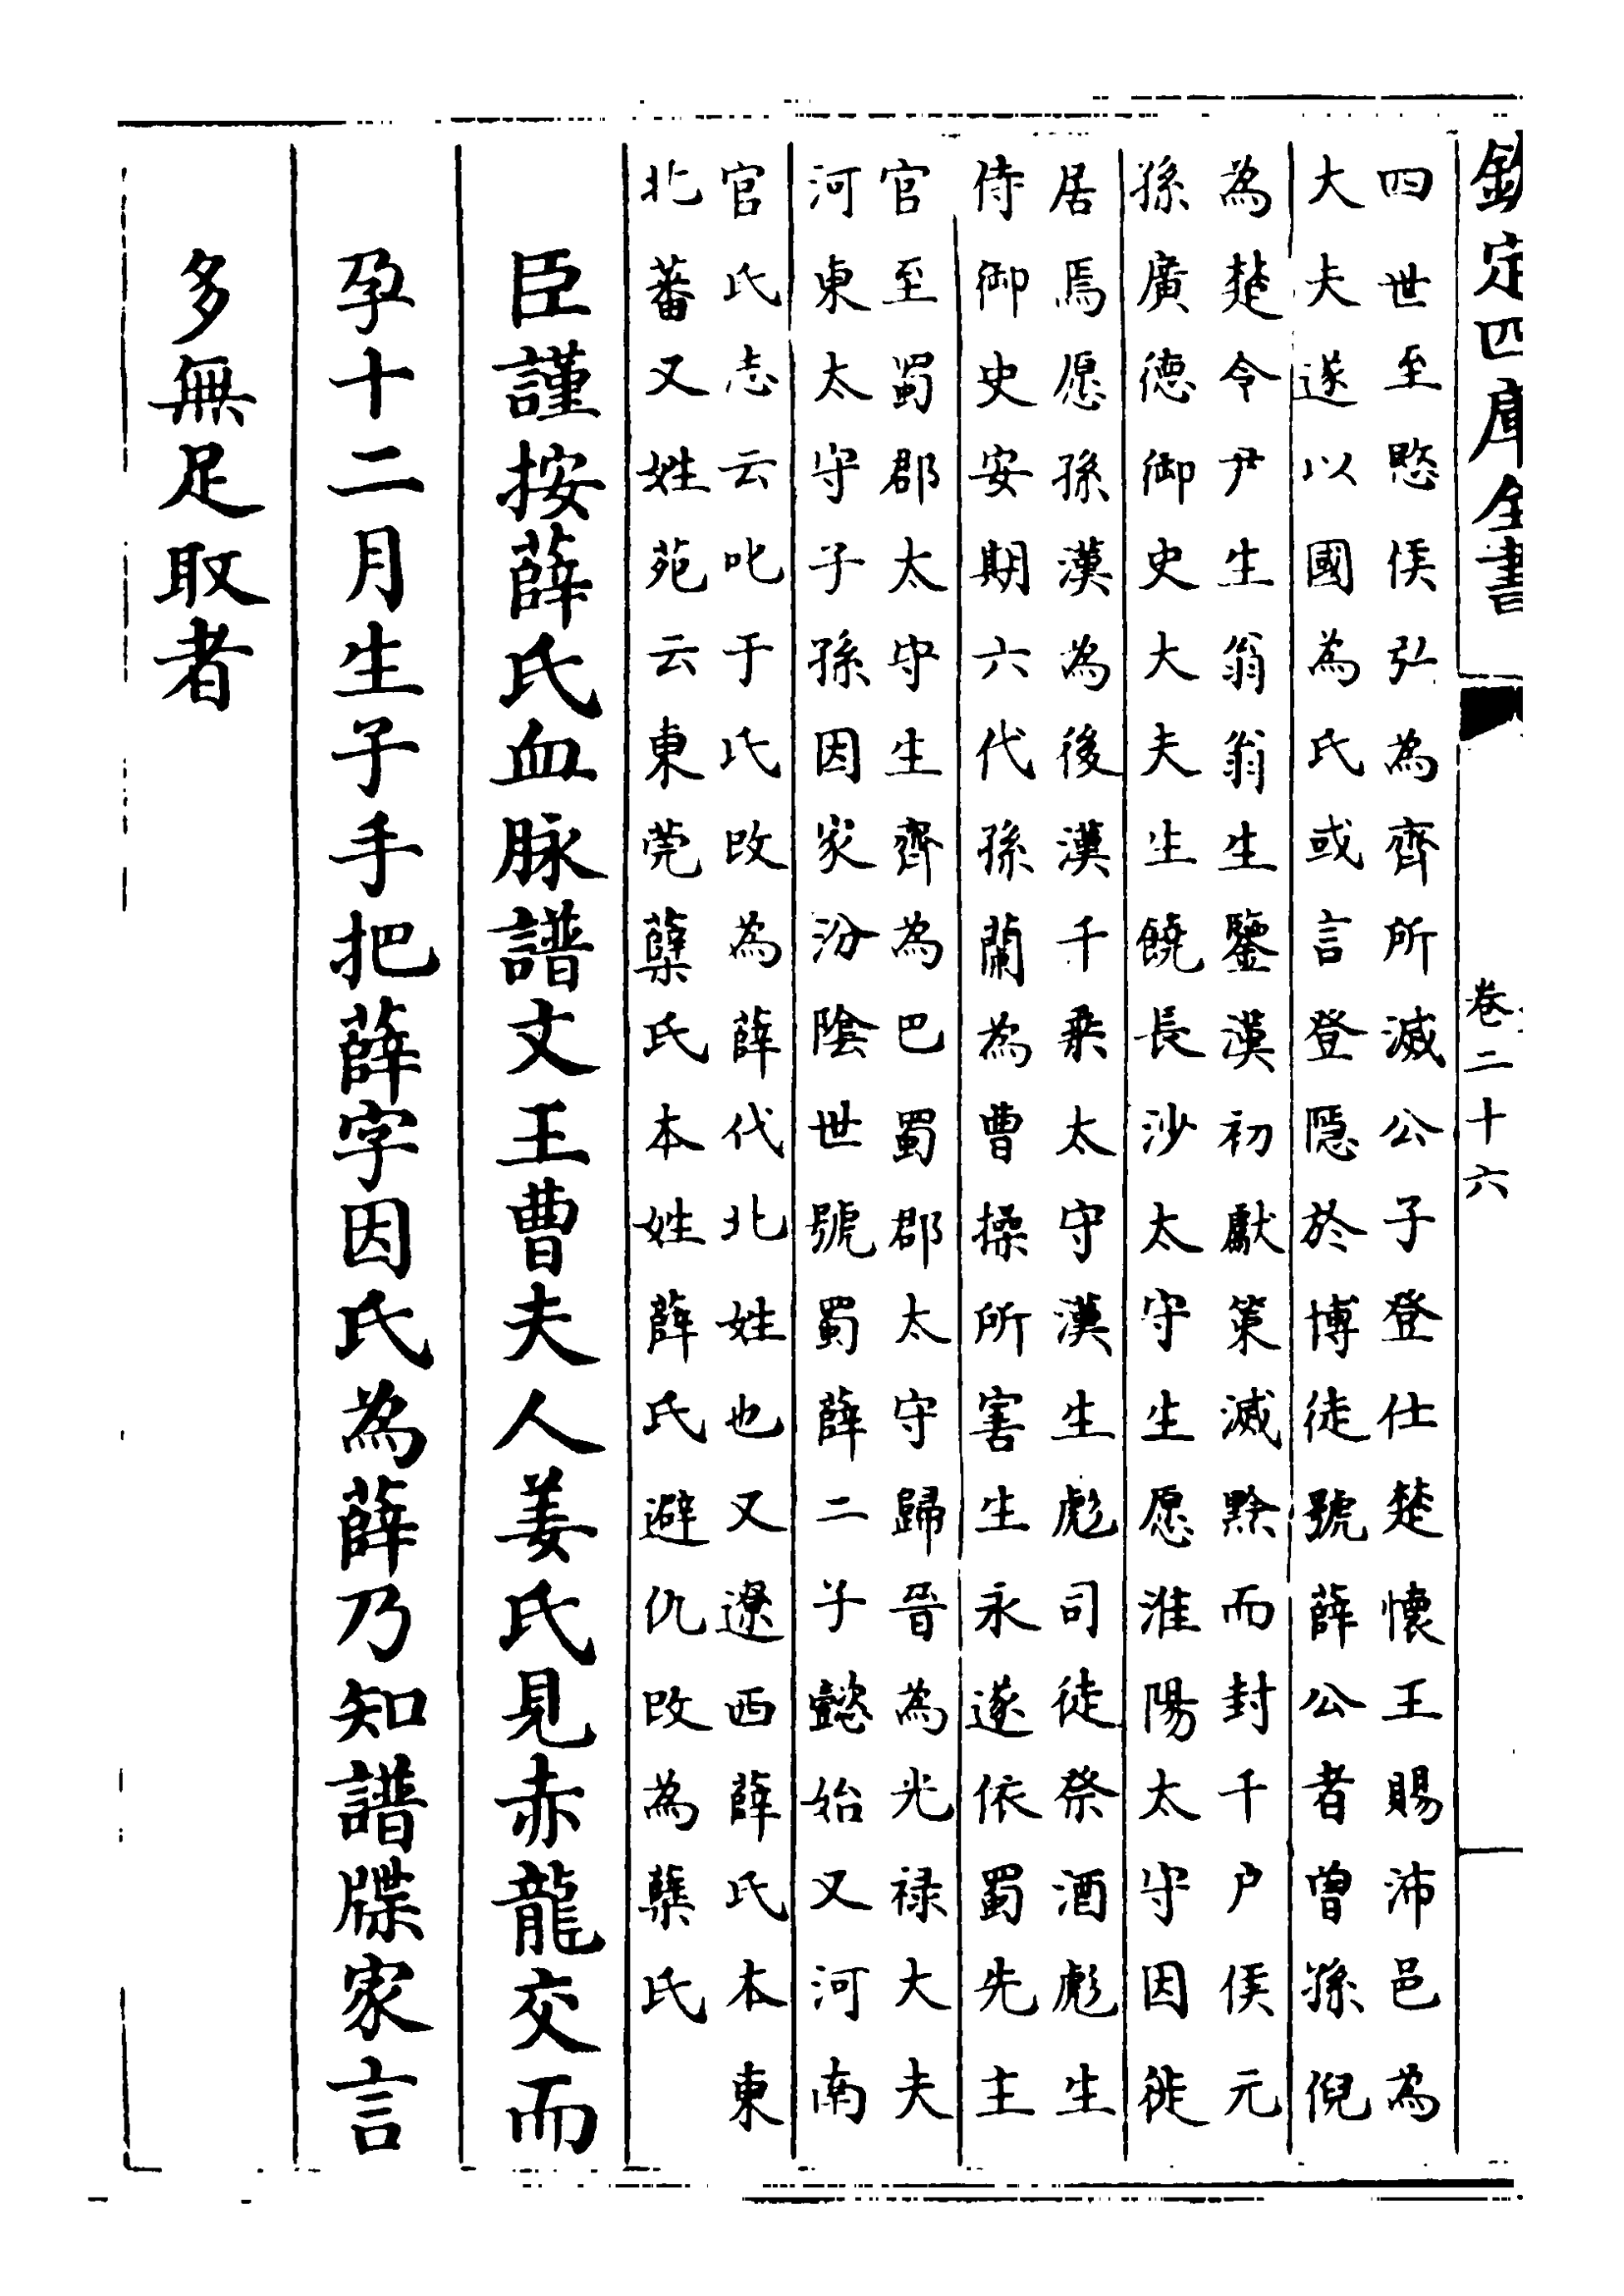 欽定四庫全書
卷二十六
四世至愍侯弘為齊所滅公子登仕楚懷王賜沛邑為
大夫遂以國為氏或言登隱於博徒號薛公者曽孫倪
為楚令尹生翁翁生鑒漢初獻策滅黥而封千户侯元
孫廣德御史大夫生饒長沙太守生愿淮陽太守因徙
居焉愿孫漢為後漢千乗太守漢生彪司徒祭酒彪生
侍御史安期六代孫蘭為曹操所害生永遂依蜀先主
官至蜀郡太守生齊為巴蜀郡太守歸晉為光禄大夫
河東太守子孫因家汾隂世號蜀薛二子懿始又河南
官氏志云叱于氏改為薛代北姓也又遼西薛氏本東
北蕃又姓苑云東莞蘖氏本姓薛氏避仇改為蘖氏
臣謹按薛氏血脉譜文王曹夫人姜氏見赤龍交而
孕十二月生子手把薛字因氏為薛乃知譜牒家言
多無足取者